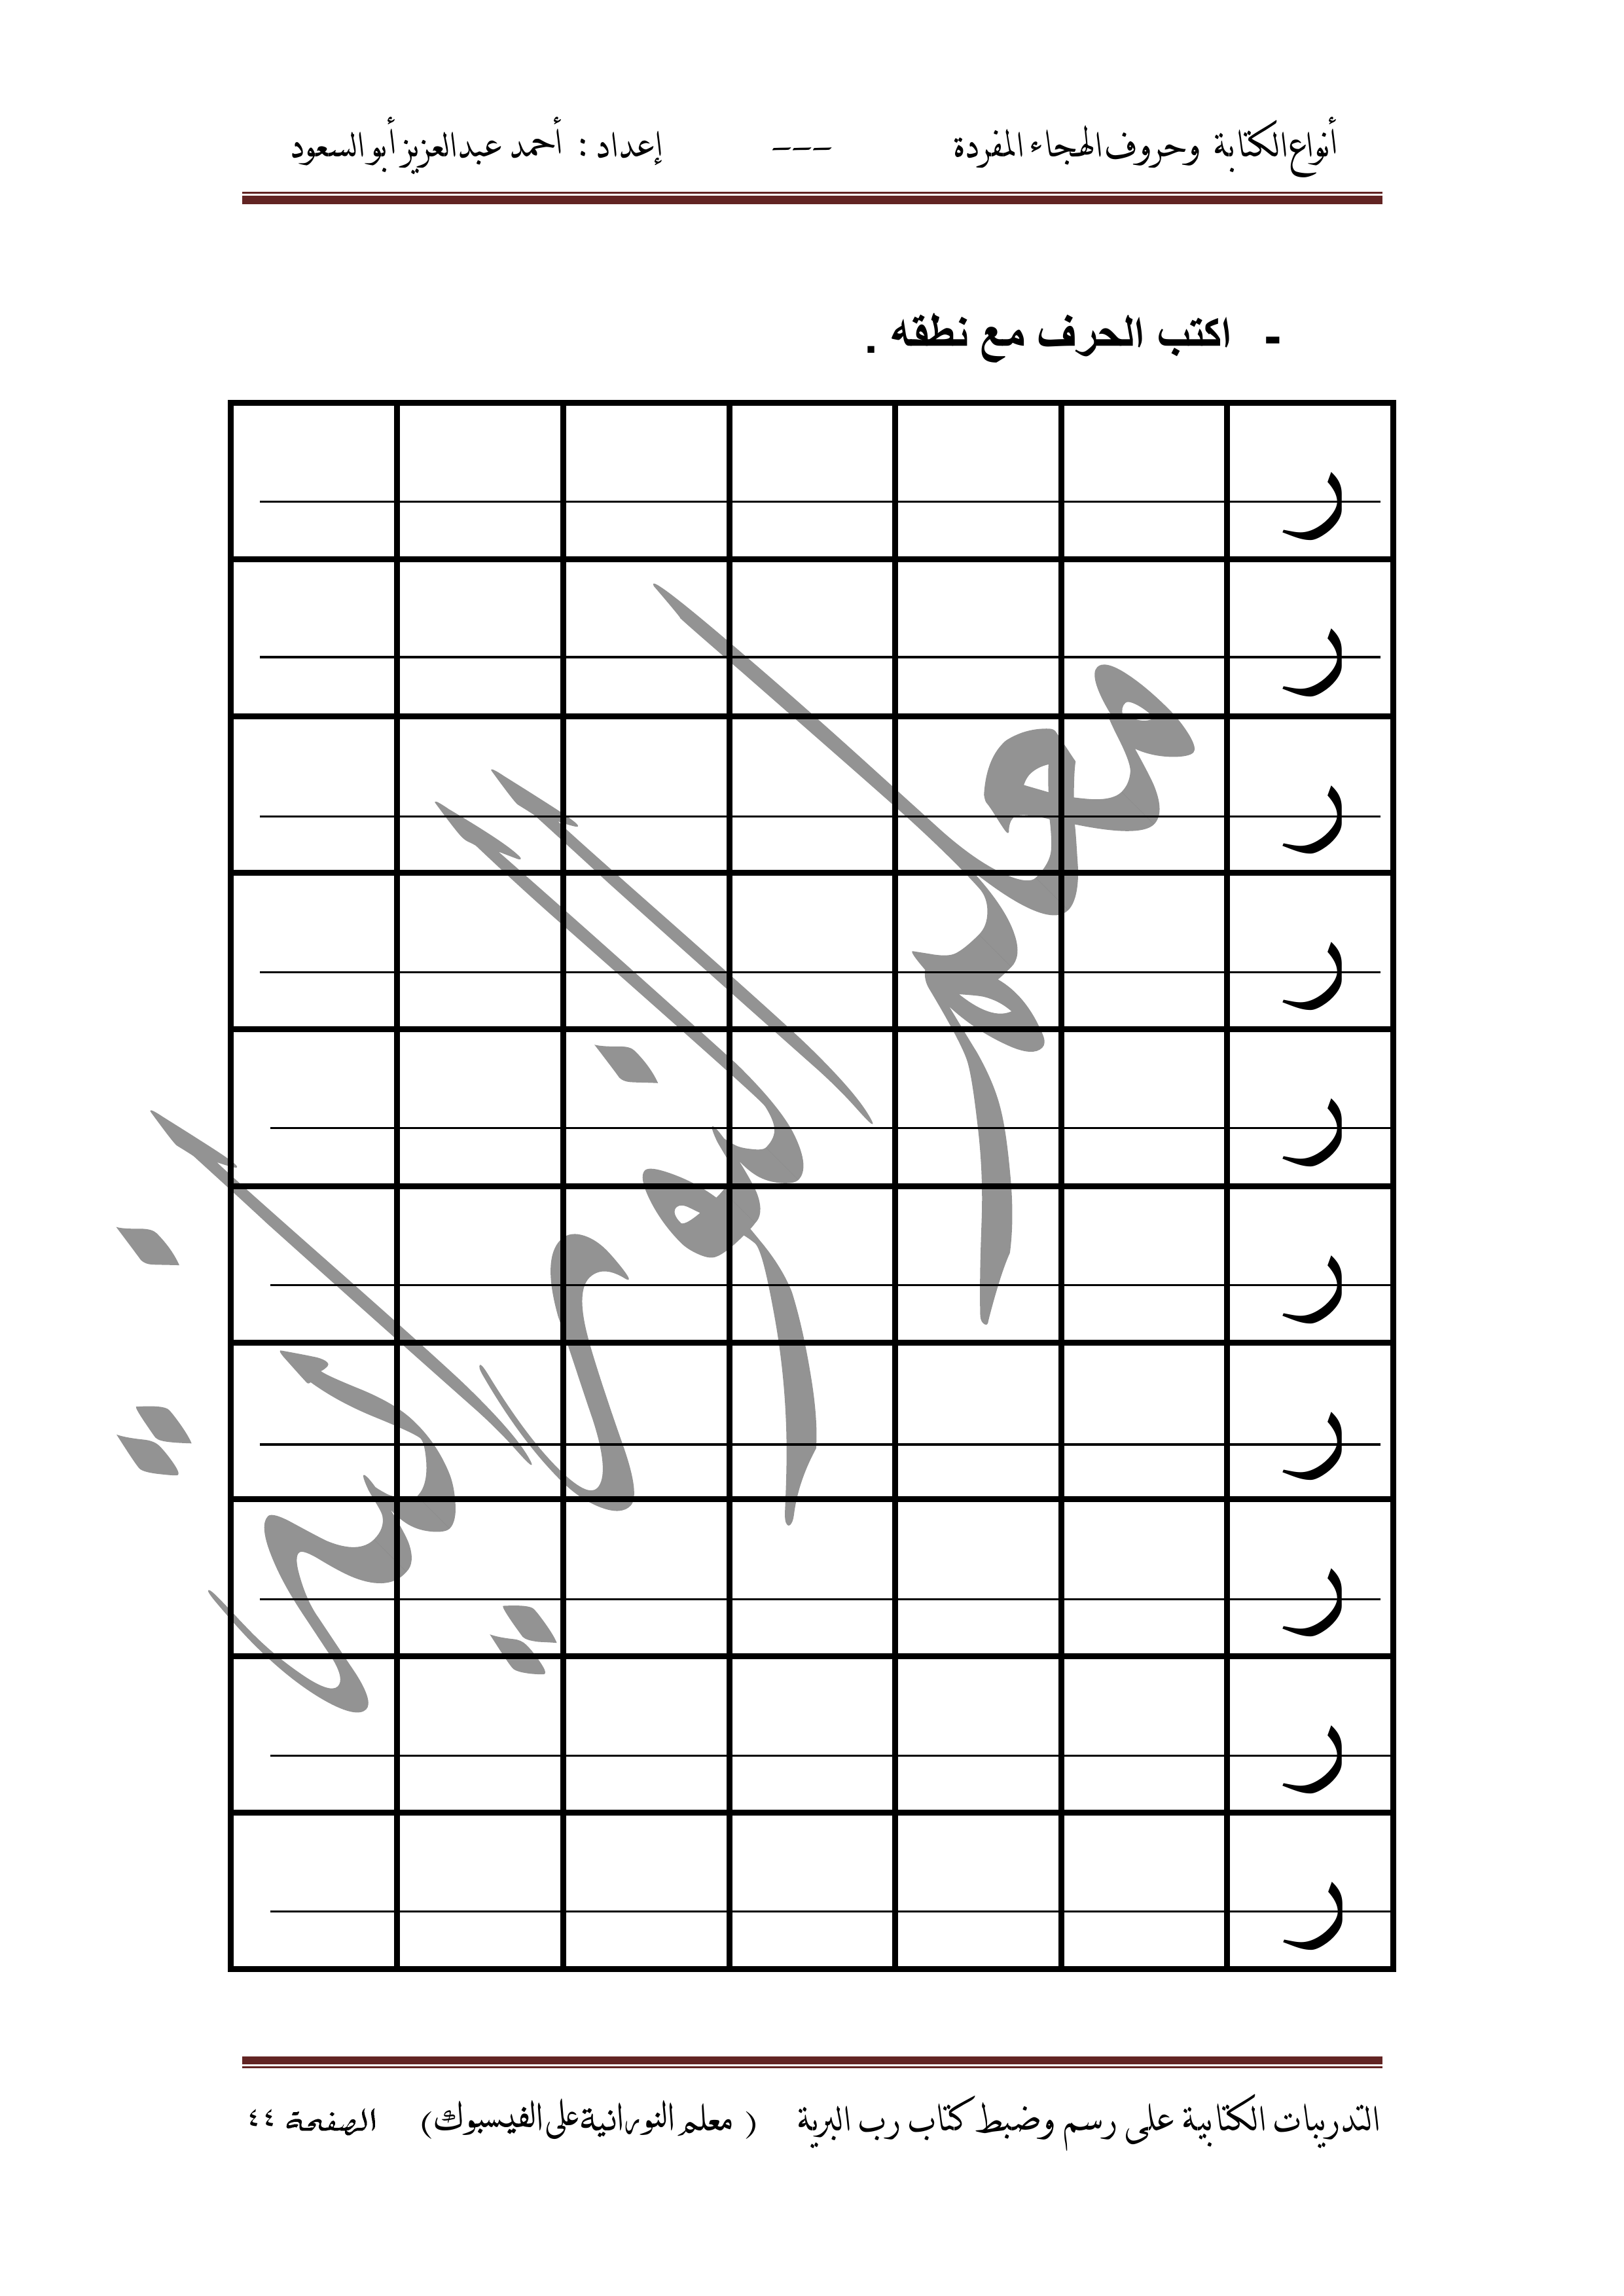 أنواع الكتابة وحروف الهجاء المفردة --- إعداد : أحمد عبدالعزيز أبو السعود
- اكتب الحرف مع نطقه .
ر
ر
ر
ر
ر
ر
ر
ر
ر
ر
معلم النورانية
التدريبات الكتابية على رسم وضبط كتاب رب البرية ( معلم النورانية على الفيسبوك) الصفحة ٤٤